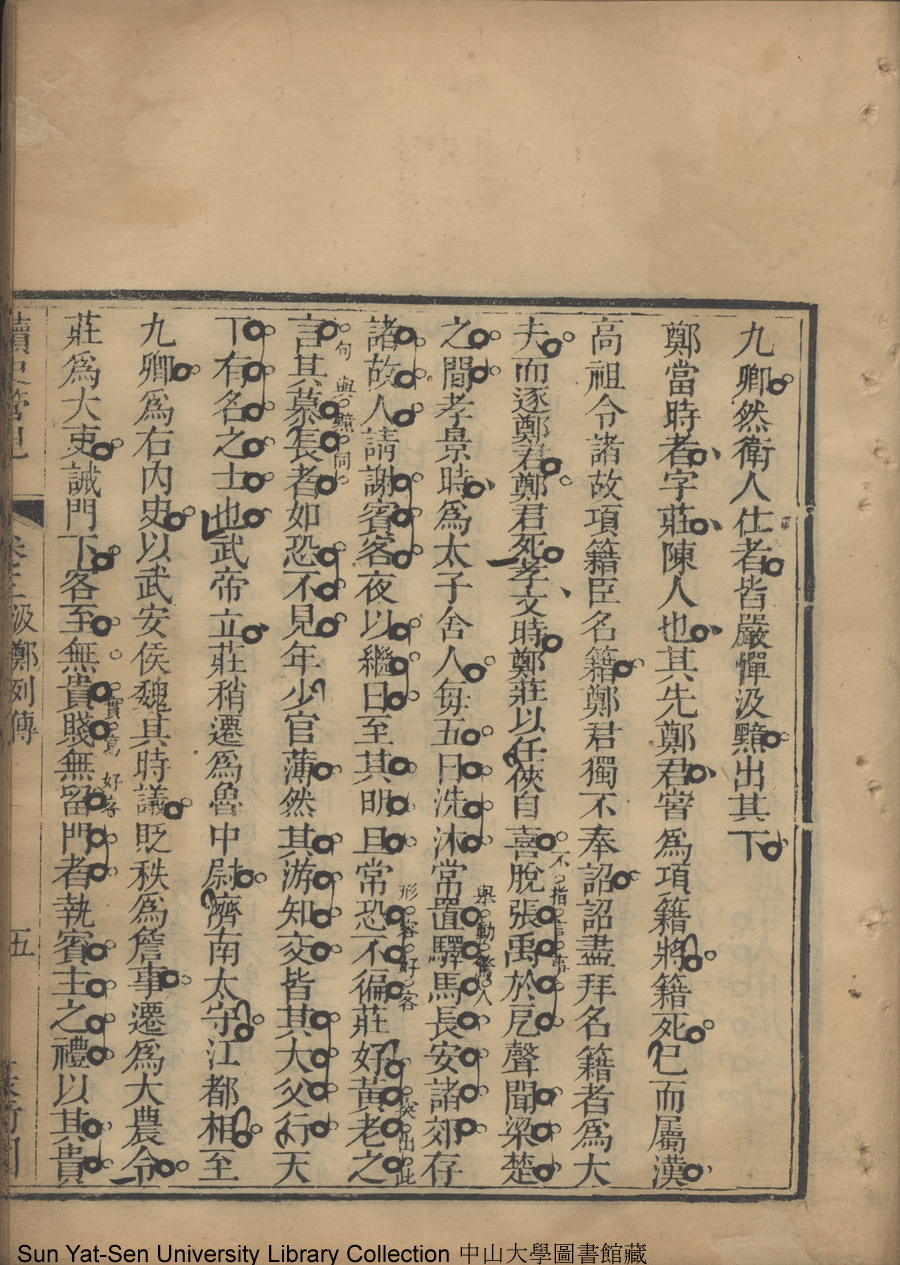 九卿然衛人仕者皆嚴憚汲黯出其下
鄭當時者字莊陳人也其先鄭君嘗為項籍將籍死已而屬漢
高祖令諸故項籍臣名籍鄭君獨不奉詔詔盡拜名籍者為大
夫而逐鄭君鄭君死孝文時鄭莊以任俠自喜脫張禹於戹聲聞梁楚
之間孝景時為太子舍人每五日洗沐常置驛馬長安諸郊存
諸故人請謝賓客夜以繼日至其明旦常恐不徧莊好黃老之
言其慕長者如恐不見年少官薄然其游知交皆其大父行天
下有名之士也武帝立莊稍遷為魯中尉濟南太守江都相至
九卿為右內史以武安侯魏其時議貶秩為詹事遷為大農令
莊為大吏誡門下客至無貴賤無留門者執賓主之禮以其貴
不指言事
與動驚人
形容好客
突出此
句與黯同
實寫好客
讀史管見
卷三汲鄭列傳
五
Sun Yat-Sen University Library Collection 中山大學圖書館藏